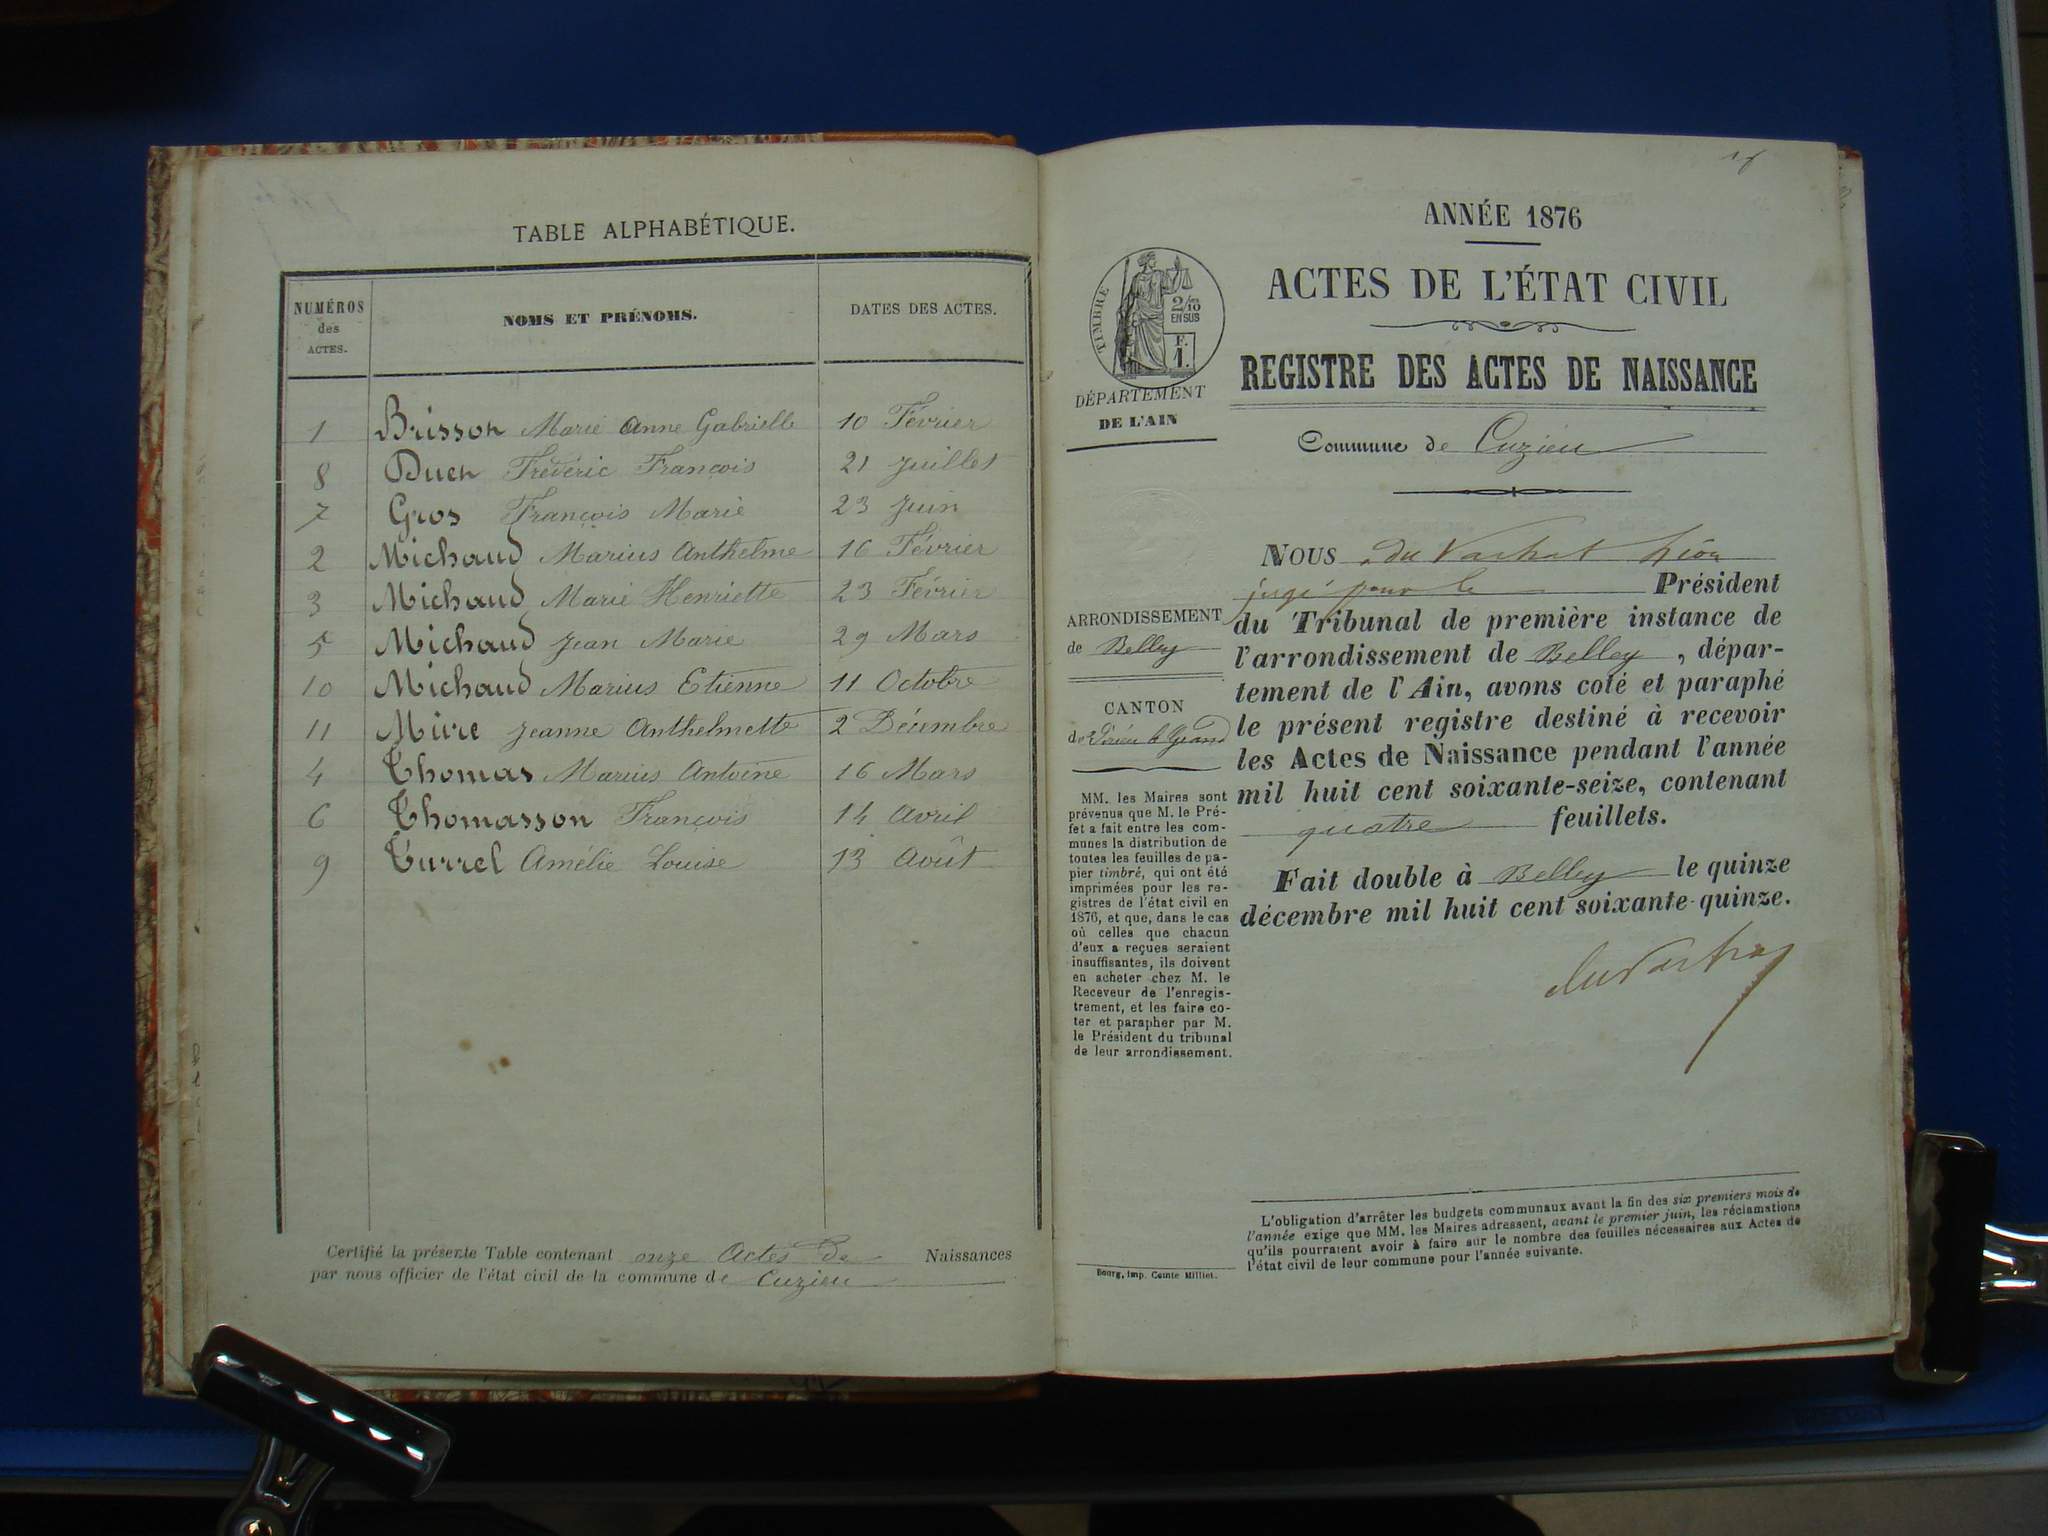 TABLE ALPHABÉTIQUE.
NUMÉROS
des
ACTES.
NOMS ET PRÉNOMS.
DATES DES ACTES.
1 Brisson Marie Anne Gabrielle 10 Février
8 Duch Frédéric François 21 Juillet
7 Gros François Marie 23 Juin
2 Michaud Marius Anthelme 16 Février
3 Michaud Marie Henriette 23 Février
5 Michaud Jean Marie 29 Mars
10 Michaud Marius Etienne 11 Octobre
11 Mure Jeanne Anthelmette 2 Décembre
4 Thomas Marius Antoine 16 Mars
6 Thomasson François 14 Avril
9 Turrel Amélie Louise 13 Août
Certifié la présente Table contenant onze Actes de Naissances
par nous officier de l'état civil de la commune de Cuzieu
ANNÉE 1876
ACTES DE L'ÉTAT CIVIL
REGISTRE DES ACTES DE NAISSANCE
Commune de Cuzieu
TIMBRE
2/10
EN SUS
F.
1.
DÉPARTEMENT
DE L'AIN
ARRONDISSEMENT
de Belley
CANTON
de Virieu le Grand
MM. les Maires sont
prévenus que M. le Pré-
fet a fait entre les com-
munes la distribution de
toutes les feuilles de pa-
pier timbré, qui ont été
imprimées pour les re-
gistres de l'état civil en
1876, et que, dans le cas
où celles que chacun
d'eux a reçues seraient
insuffisantes, ils doivent
en acheter chez M. le
Receveur de l'enregis-
trement, et les faire co-
ter et parapher par M.
le Président du tribunal
de leur arrondissement.
Bourg, imp. Comte Milliet.
NOUS du Vachat Léon
juge pour le Président
du Tribunal de première instance de
l'arrondissement de Belley, dépar-
tement de l'Ain, avons coté et paraphé
le présent registre destiné à recevoir
les Actes de Naissance pendant l'année
mil huit cent soixante-seize, contenant
quatre feuillets.
Fait double à Belley le quinze
décembre mil huit cent soixante-quinze.
du Vachat
L'obligation d'arrêter les budgets communaux avant la fin des six premiers mois de
l'année exige que MM. les Maires adressent, avant le premier juin, les réclamations
qu'ils pourraient avoir à faire sur le nombre des feuilles nécessaires aux Actes de
l'état civil de leur commune pour l'année suivante.